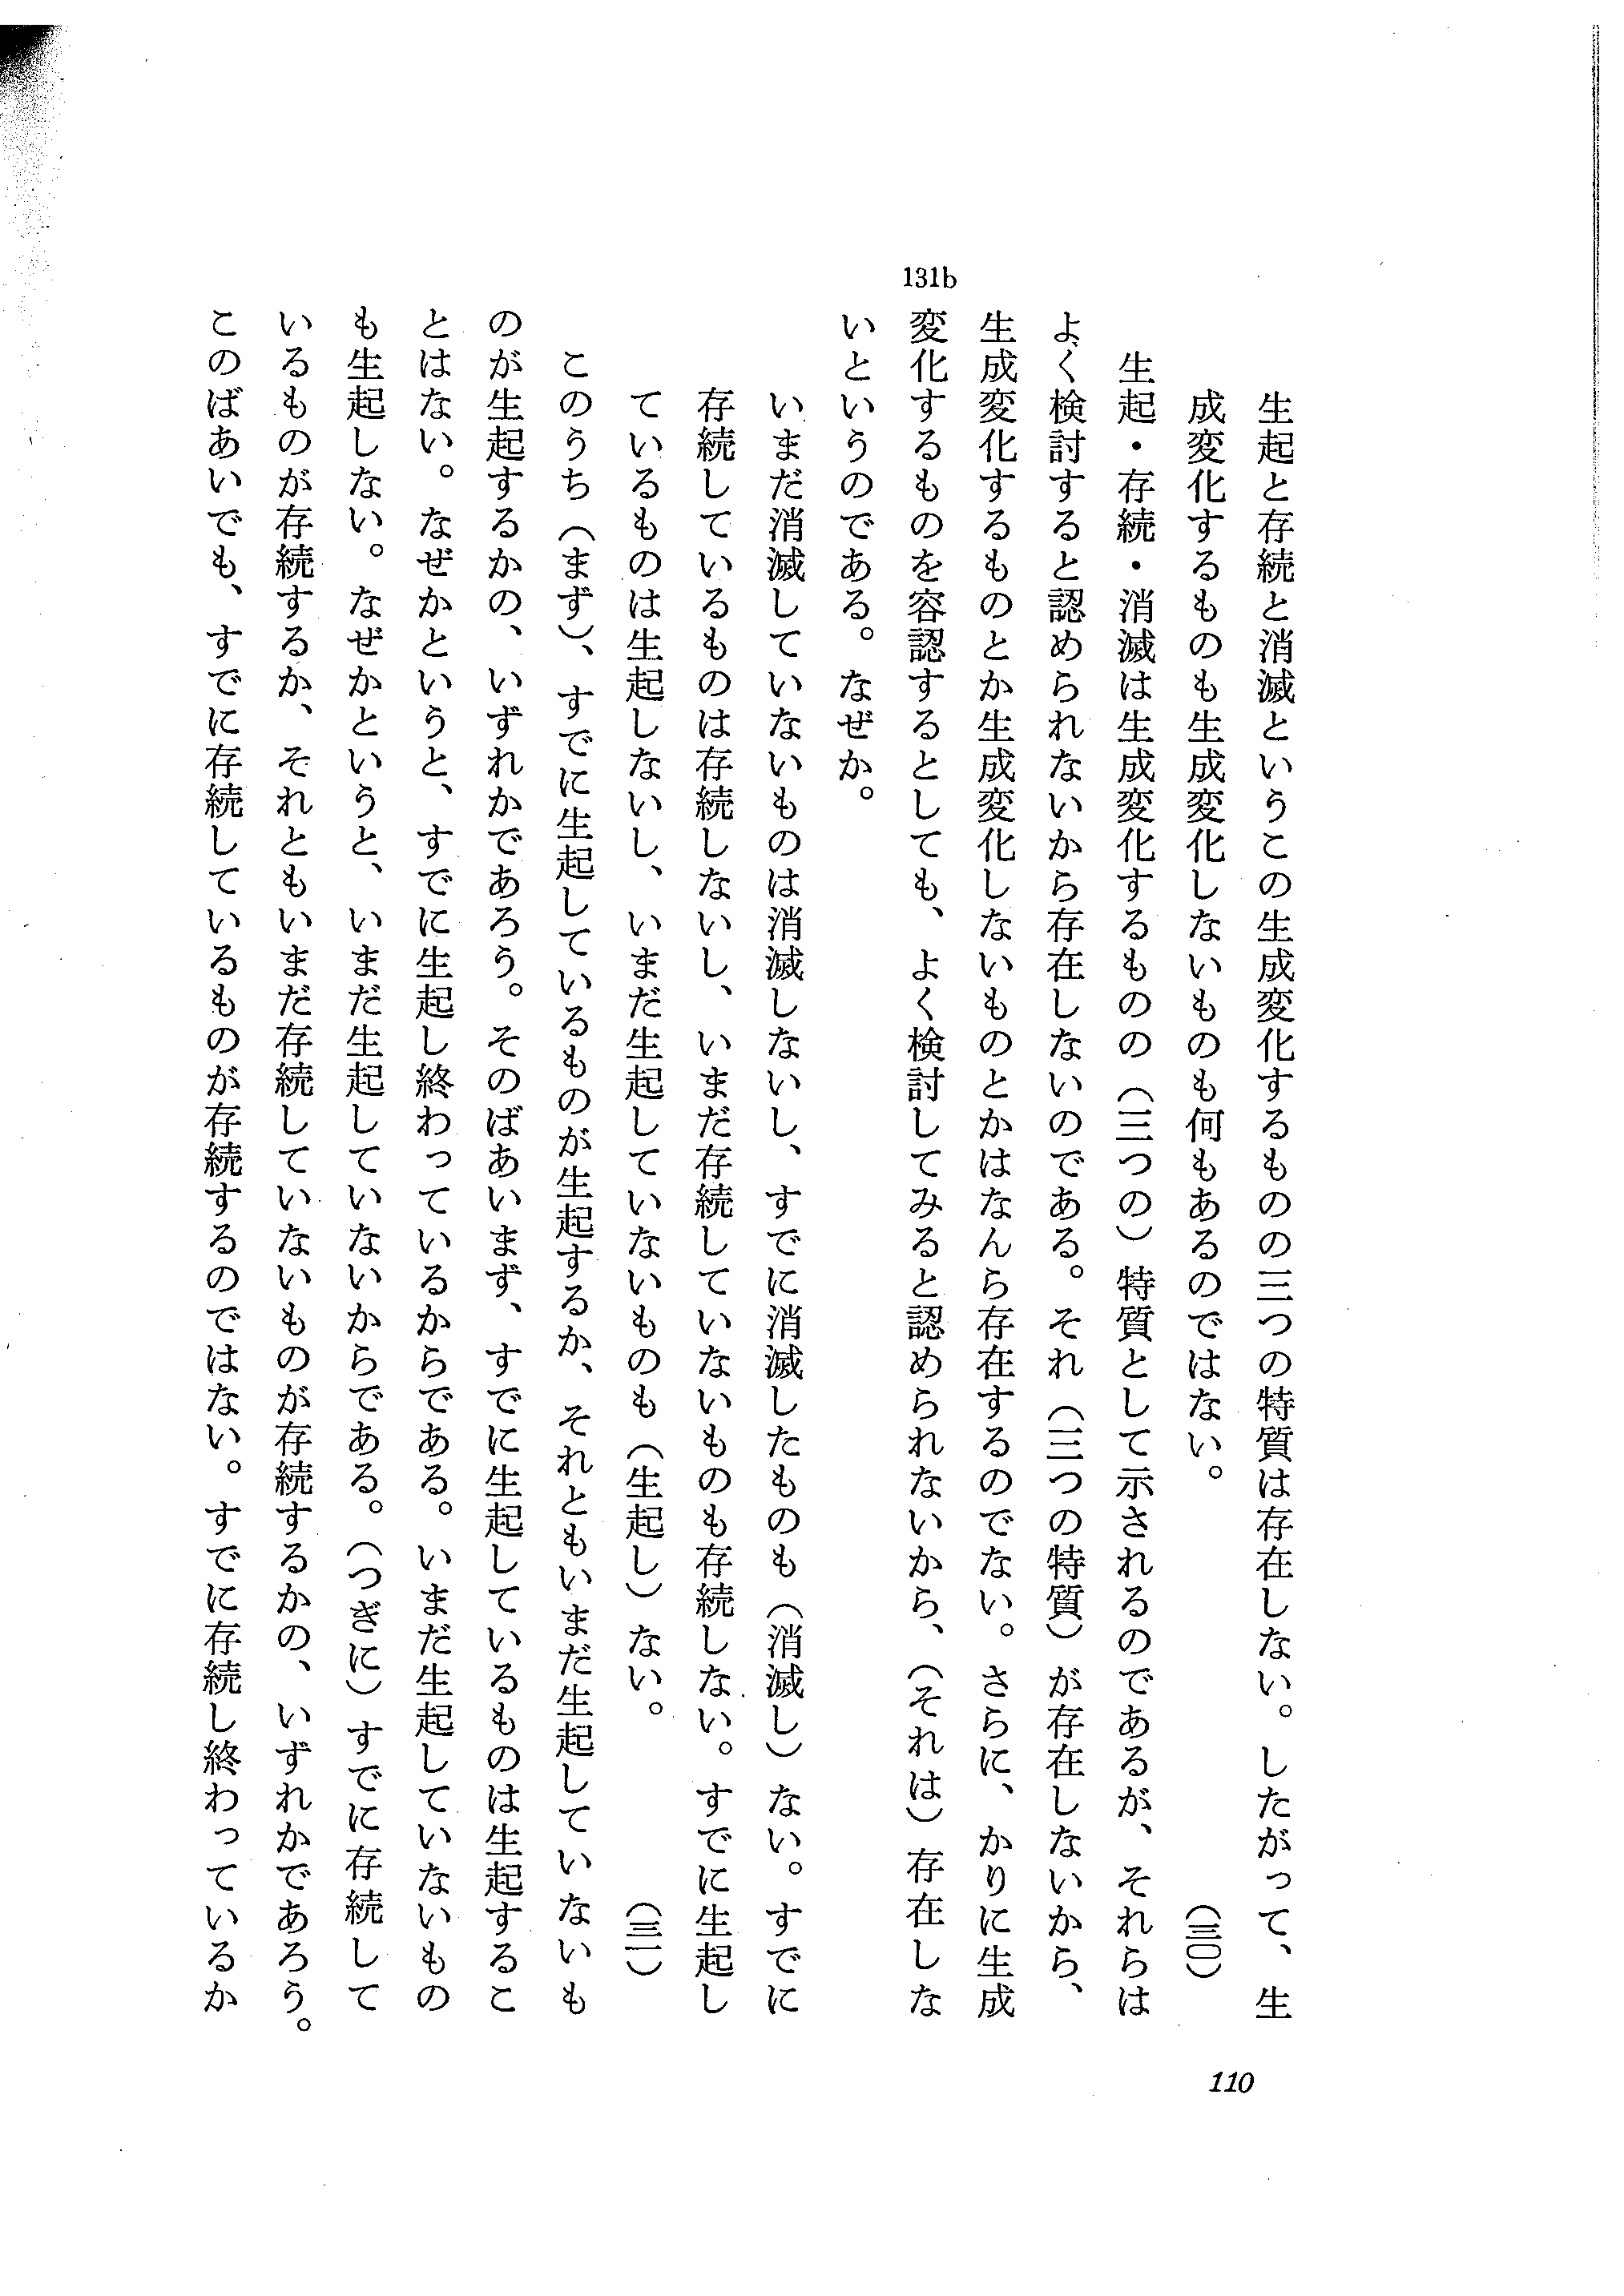 生起と存続と消滅というこの生成変化するものの三つの特質は存在しない。したがって、生
成変化するものも生成変化しないものも何もあるのではない。（三〇）
生起・存続・消滅は生成変化するものの（三つの）特質として示されるのであるが、それらは
よく検討すると認められないから存在しないのである。それ（三つの特質）が存在しないから、
生成変化するものとか生成変化しないものとかはなんら存在するのでない。さらに、かりに生成
131b
変化するものを容認するとしても、よく検討してみると認められないから、（それは）存在しな
いというのである。なぜか。
いまだ消滅していないものは消滅しないし、すでに消滅したものも（消滅し）ない。すでに
存続しているものは存続しないし、いまだ存続していないものも存続しない。すでに生起し
ているものは生起しないし、いまだ生起していないものも（生起し）ない。（三一）
このうち（まず）、すでに生起しているものが生起するか、それともいまだ生起していないも
のが生起するかの、いずれかであろう。そのばあいまず、すでに生起しているものは生起するこ
とはない。なぜかというと、すでに生起し終わっているからである。いまだ生起していないもの
も生起しない。なぜかというと、いまだ生起していないからである。（つぎに）すでに存続して
いるものが存続するか、それともいまだ存続していないものが存続するかの、いずれかであろう。
このばあいでも、すでに存続しているものが存続するのではない。すでに存続し終わっているか
110